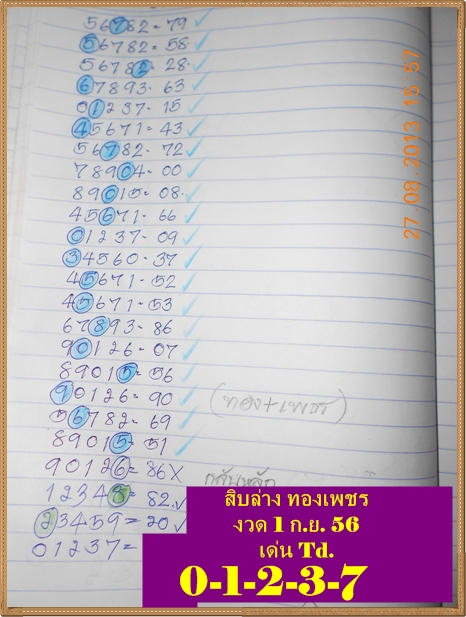 56782 = 79
56782 = 58
56782 = 28
67893 - 63
01237 - 15
45671 = 43
56782 - 72
78904 - 00
89015 = 08
45671 - 66
01237 - 09
34560 - 37
45671 - 52
45671 = 53
67893 - 86
90126 - 07
89015 = 56
90126 - 90
56782 - 69
89015 = 51
90126 = 86 X
12348 = 82
23459 = 20
01237 =
(ทอง+เพชร)
กลับหลัก
27.08.2013 15:57
สิบล่าง ทองเพชร
งวด 1 ก.ย. 56
เด่น Td.
0-1-2-3-7